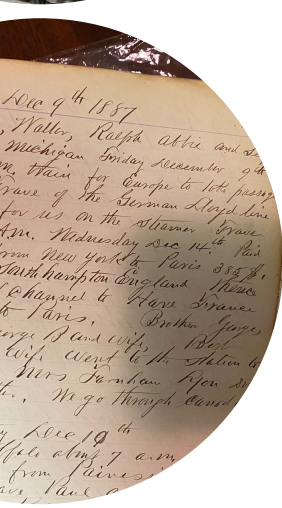 Dec 9th 1887
, Walter, Ralph abbie and
Michigan Friday December 9th
m. train for Europe to take passag
Trave of the German Lloyd line
for us on the Steamer Trave
A.m. Wednesday Dec 14th Paid
from New York to Paris 385 $.
Southhampton England thence
Channel to Havre France
to Paris. Brother Georges
eorge B and wife,
Wife went to the station to
Mrs Farnham Lyon
We go through
Dec 10th
ffalo about 7 a.m.
from Painesv